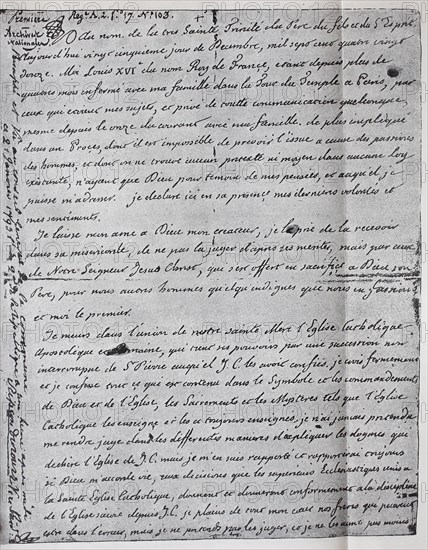 Première
Regre A. 2. fo. 17. No. 103.
Archives
Nationales
Au nom de la tres Sainte Trinité du Pere du fils et du St Esprit
aujourd'hui vingt cinquième jour de Decembre, mil sept cent quatre vingt
Douze. Moi Louis XVI du nom Roy de France, etant depuis plus de
quatres mois enfermé avec ma famille dans la Tour du Temple a Paris, par
ceux qui etoient mes sujets, et privé de toutte communication quelconque,
mesme depuis le onze du courant avec ma famille. de plus impliqué
dans un Procès, dont il est impossible de prevoir l'issue a cause des passions
des hommes, et dont on ne trouve aucun pretexte ni moyen dans aucune Loy
existante, n'ayant que Dieu pour temoin de mes pensées, et auquel je
puisse m'adresser. je declare ici en sa presence mes dernieres volontés et
mes sentiments.
Je laisse mon ame a Dieu mon createur, je le prie de la recevoir
dans sa misericorde, de ne pas la juger d'apres ses merites, mais par ceux
de Notre Seigneur Jesus Christ, qui s'est offert en sacrifice a Dieu son
Pere, pour nous autres hommes quelqu'indignes que nous en fussions
et moi le premier.
Je meurs dans l'union de notre sainte Mere l'Eglise Catholique
Apostolique et Romaine, qui tient ses pouvoirs par une succession non
interrompue de St Pierre auquel J. C. les avoit confiés, je crois fermement
et je confesse tout ce qui est contenu dans le Symbole et les commandements
de Dieu et de l'Eglise, les Sacrements et les Mysteres tels que l'Eglise
Catholique les enseigne et les a toujours enseignés, je n'ai jamais pretendu
me rendre juge dans les differentes manieres d'expliquer les dogmes, qui
dechire l'Eglise de J. C. mais je m'en suis rapporté et rapporterai toujours
si Dieu m'accorde vie, aux decisions que les superieurs Ecclesiastiques unis a
la Sainte Eglise Catholique, donnent et donneront conformement a la discipline
de l'Eglise suivie depuis J. C. je plains de tout mon cœur nos freres qui peuvent
estre dans l'erreur, mais je ne pretends pas les juger, et je ne les aime pas moins